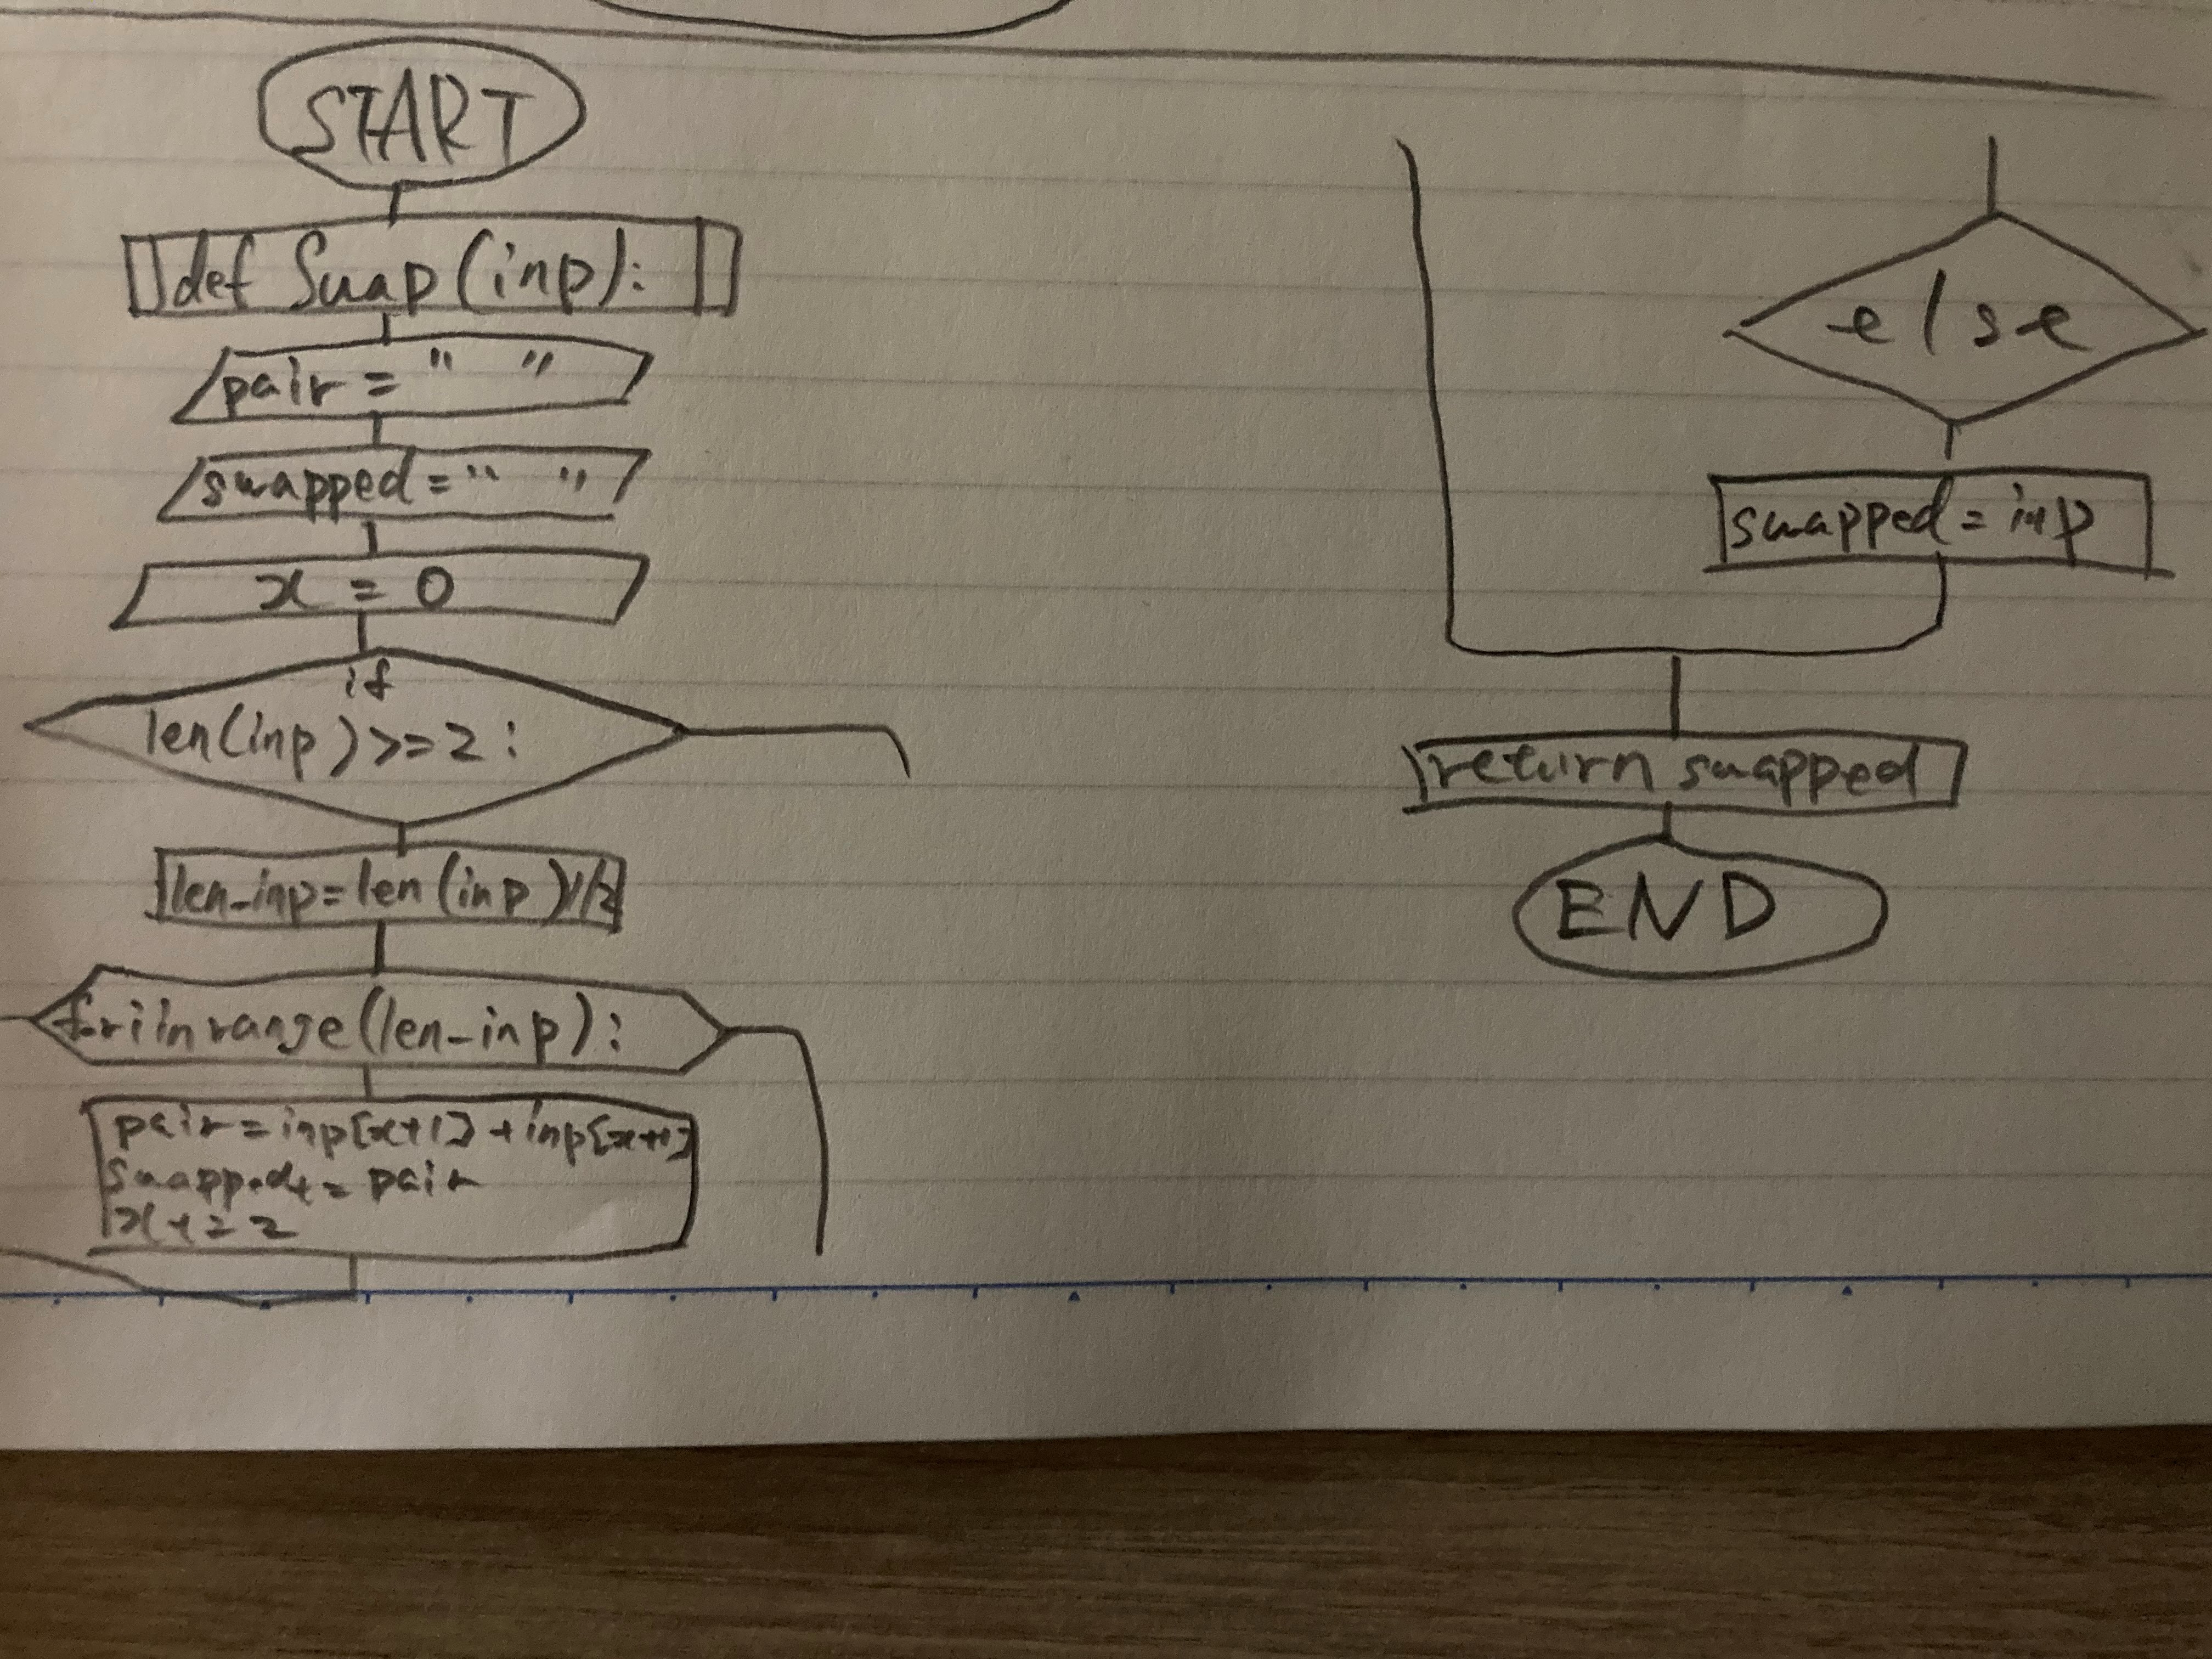 START
def Swap(inp):
pair = " "
swapped = " "
x = 0
if
len(inp) >= 2 :
len_inp = len(inp)//2
for i in range(len_inp):
pair = inp[x+1] + inp[x+1]
swapped += pair
x += 2
else
swapped = inp
return swapped
END